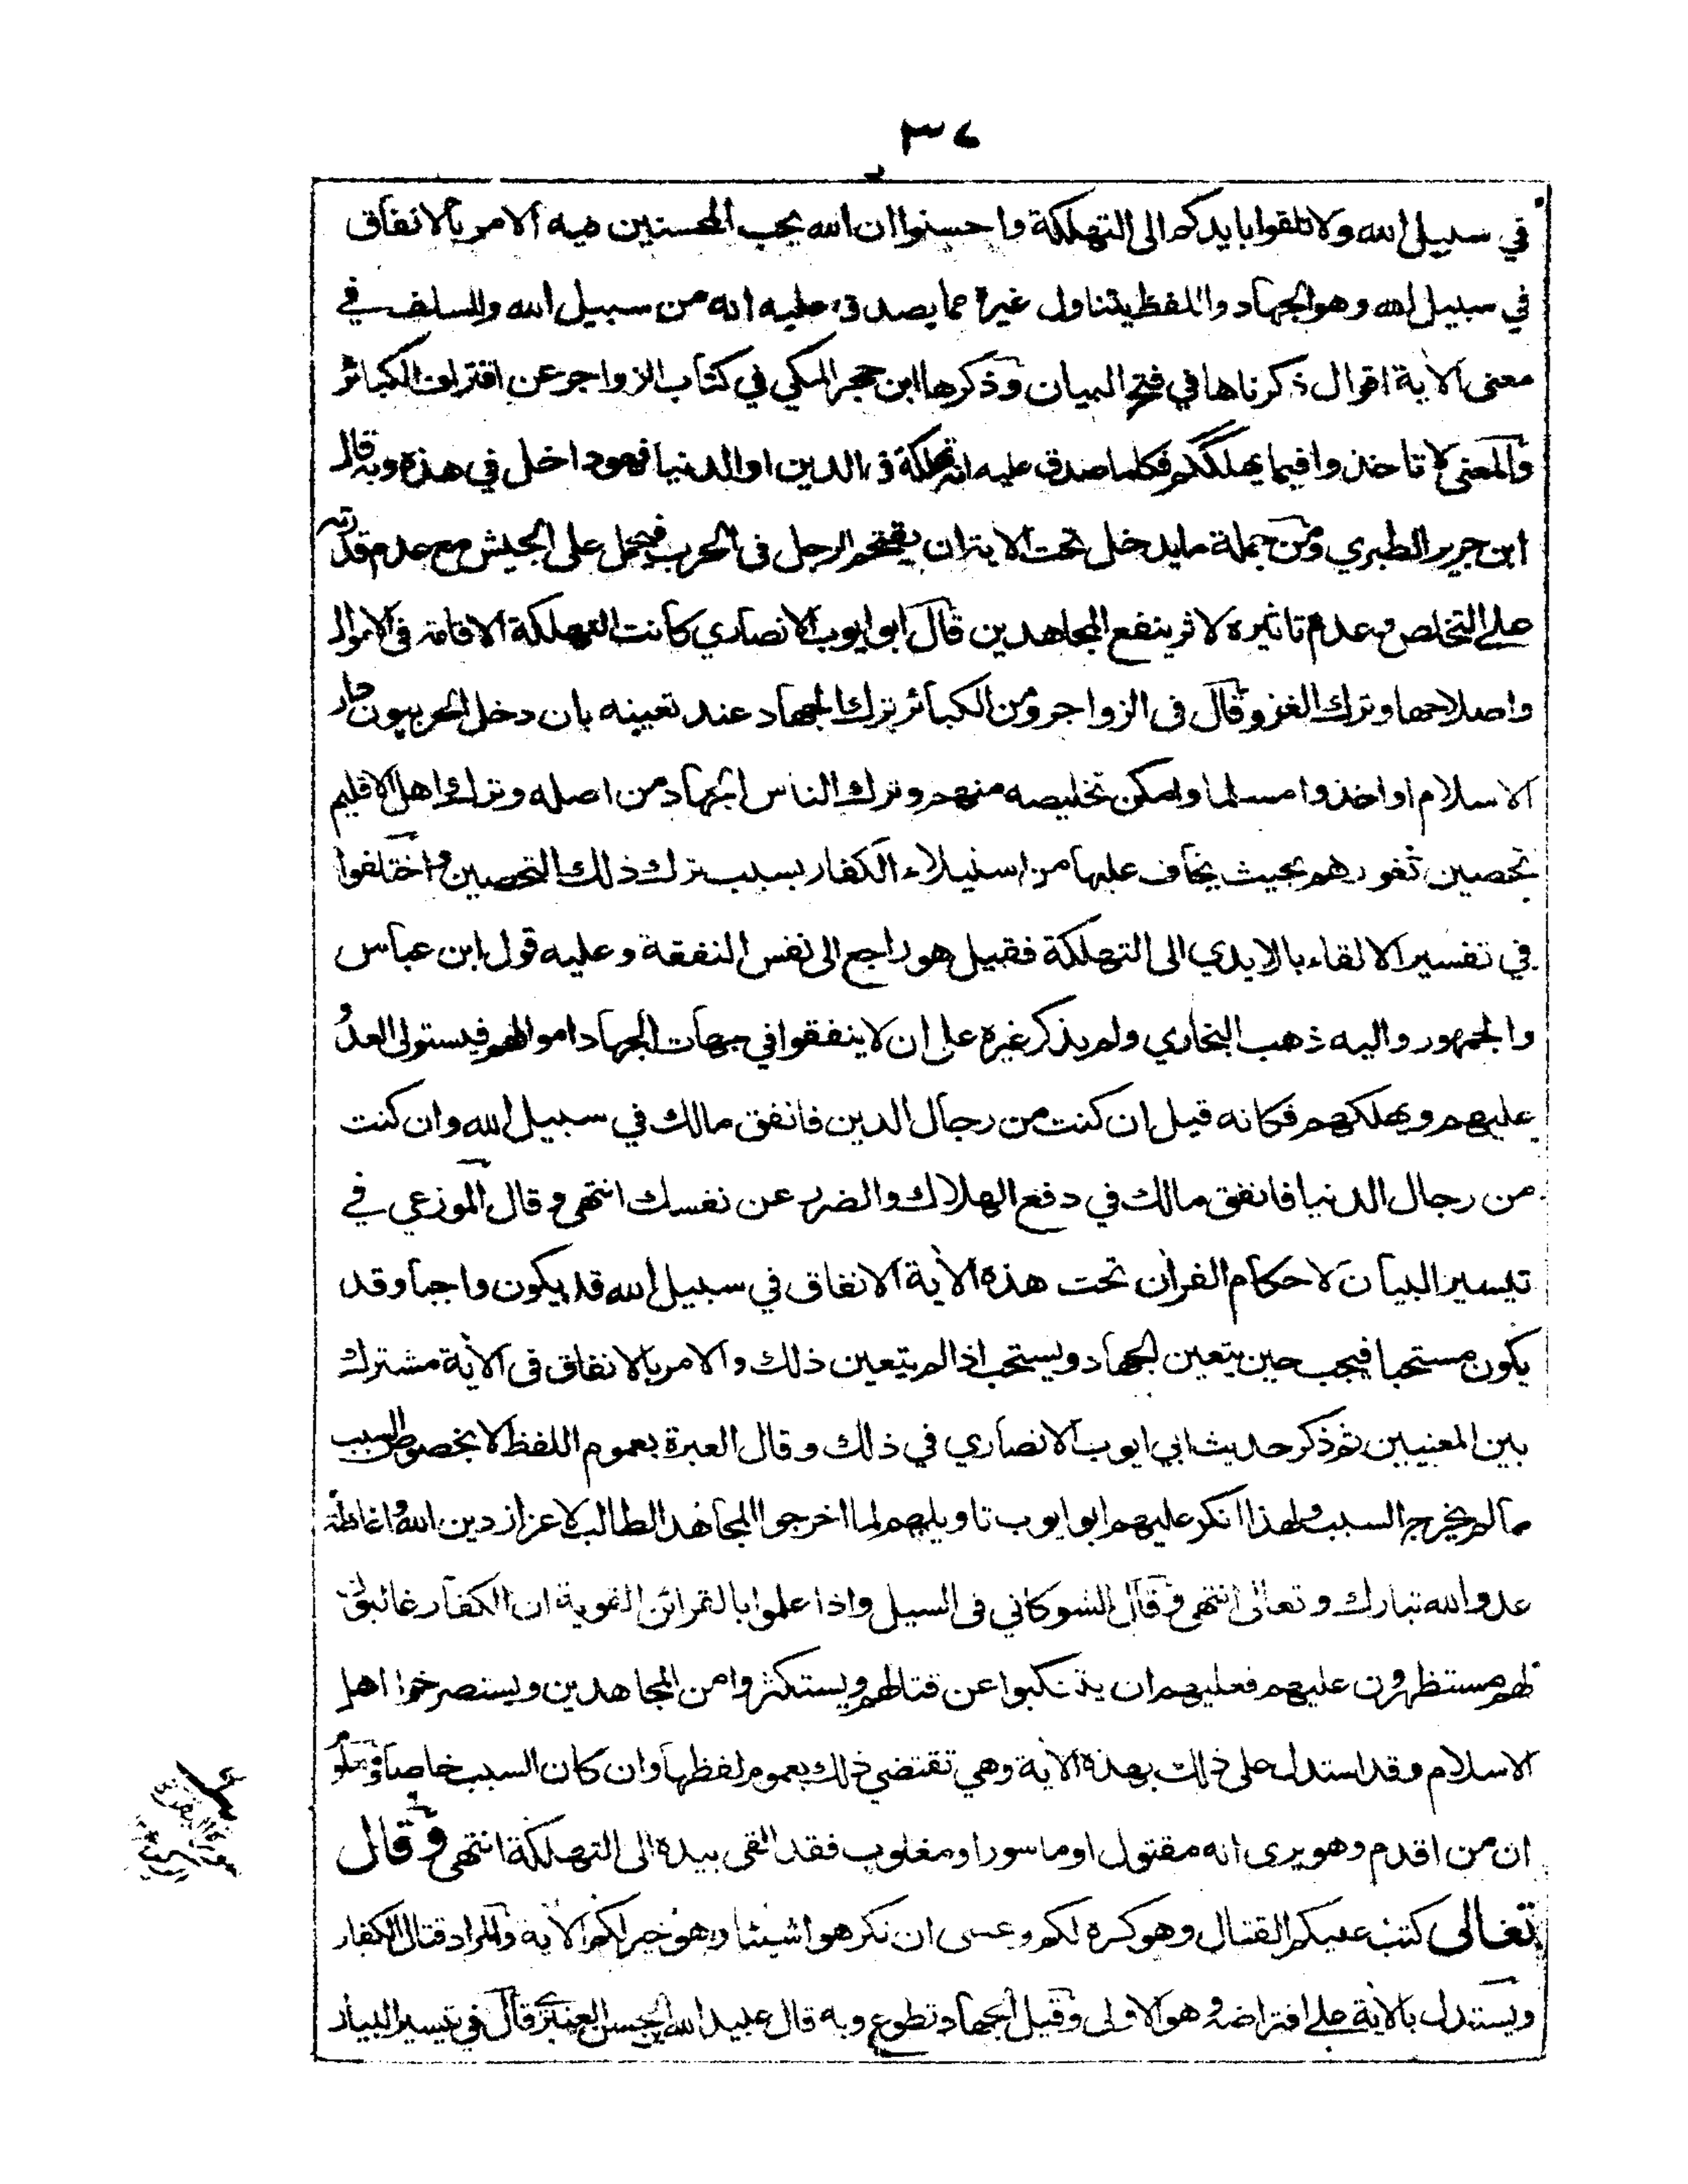 ٣٧
في سبيل الله ولا تلقوا بايديكم الى التهلكة واحسنوا ان الله يحب المحسنين فيه الامر بالانفاق
في سبيل الله وهو الجهاد واللفظ يتناول غيرة مما يصدق عليه انه من سبيل الله وللسلف في
معنى الاية اقوال ذكرناها في فتح البيان وذكرها ابن حجر المكي في كتاب الزواجر عن اقتراف الكبائر
والمعنى لا تاخذوا فيما يهلككم فكلما صدق عليه انه تهلكة فى الدين او الدنيا فهو داخل في هذه وبه قال
ابن جرير الطبري ومن جملة ما يدخل تحت الاية ان يقتحم الرجل فى الحرب فيحمل على الجيش مع عدم قدرته
على التخلص وعدم تاثيره لاثر ينفع المجاهدين قال ابو ايوب الانصاري كانت التهلكة الاقامة فى الاموال
واصلاحها وترك الغزو وقال فى الزواجر ومن الكبائر ترك الجهاد عند تعيينه بان دخل الحربيون دار
الاسلام او اخذوا مسلما وامكن تخليصه منهم وترك الناس الجهاد من اصله وترك اهل الاقليم
تحصين ثغورهم بحيث يخاف عليها من استيلاء الكفار بسبب ترك ذلك التحصين واختلفوا
في تفسير الالقاء بالايدي الى التهلكة فقيل هو راجع الى نفس النفقة وعليه قول ابن عباس
والجمهور واليه ذهب البخاري ولم يذكر غيره على ان لا ينفقوا في جهات الجهاد اموالهم فيستولى العدو
عليهم ويهلكهم فكانه قيل ان كنت من رجال الدين فانفق مالك في سبيل الله وان كنت
من رجال الدنيا فانفق مالك في دفع الهلاك والضرر عن نفسك انتهى وقال الموزعي في
تيسير البيان لاحكام القرآن تحت هذه الأية الانفاق في سبيل الله قد يكون واجبا وقد
يكون مستحبا فيجب حين يتعين الجهاد ويستحب اذا لم يتعين ذلك والامر بالانفاق فى الأية مشترك
بين المعنيين ثم ذكر حديث ابي ايوب الانصاري في ذلك وقال العبرة بعموم اللفظ لا بخصوص السبب
ما لم يخرج السبب ولهذا انكر عليهم ابو ايوب تاويلهم لما اخرجوا المجاهد الطالب لاعزاز دين الله واغاظة
عدو الله تبارك وتعالى انتهى وقال الشوكاني فى السيل واذا علموا بالقرائن القوية ان الكفار غالبون
لهم مستظهرون عليهم فعليهم ان يتنكبوا عن قتالهم ويستكثروا من المجاهدين ويستصرخوا اهل
الاسلام وقد استدل على ذلك بهذه الأية وهي تقتضي ذلك بعموم لفظها وان كان السبب خاصا ومعلوم
ان من اقدم وهو يرى انه مقتول او ماسور او مغلوب فقد القى بيدة الى التهلكة انتهى وقال
تعالى كتب عليكم القتال وهو كره لكم وعسى ان تكرهوا شيئا وهو خير لكم الأية والمراد قتال الكفار
ويستدل بالأية على افتراضه وهو الاولى وقيل الجهاد تطوع وبه قال عبيد الله بن الحسن العنبري قال في تيسير البيان